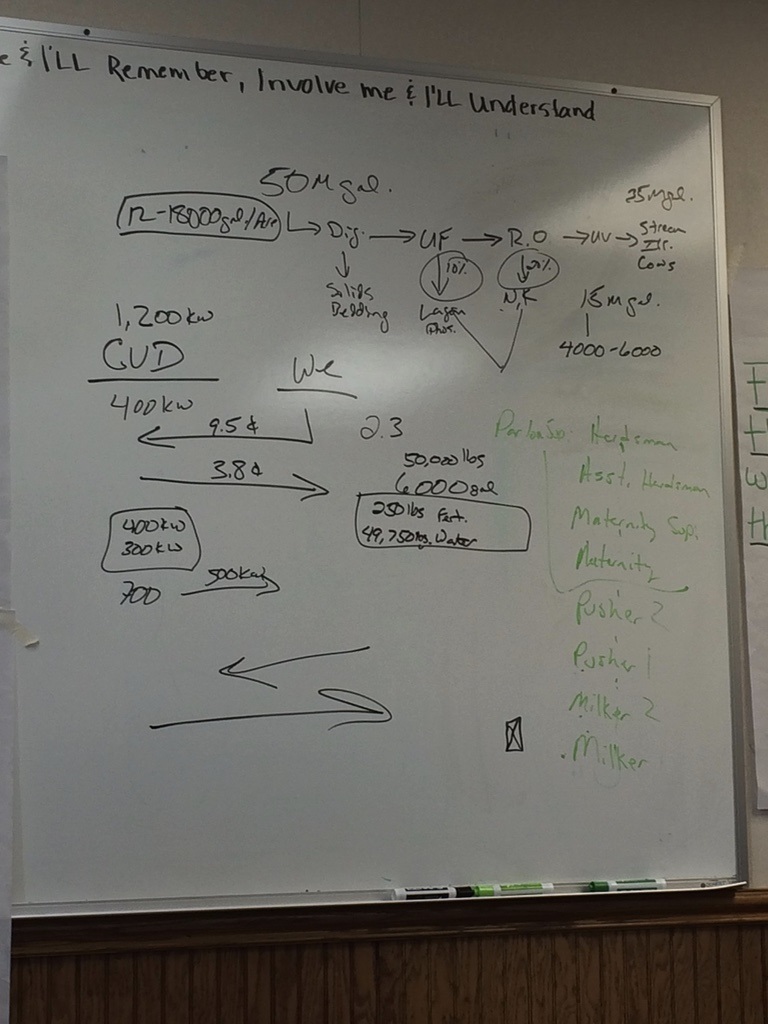 & I'LL Remember, Involve me & I'LL Understand
50 M gal.
25 M gal.
12-18000 gal/Acre → Dig. → UF → R.O → UV → Stream
Irr.
Cows
10%
20%
Solids
Bedding
Lagoon
Phos.
N, K
15 M gal.
4000-6000
1,200 kw
CUD
We
400 kw
9.5¢
2.3
3.8¢
50,000 lbs
6000 gal
250 lbs Fert.
49,750 lbs. Water
400 kw
300 kw
700
500 kw
Parlor Sup. Herdsman
Asst. Herdsman
Maternity Sup.
Maternity
Pusher 2
Pusher 1
Milker 2
Milker